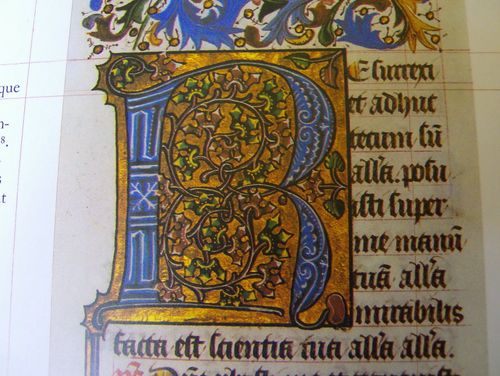 que
R
Esurrexi
et adhuc
tecum sū
all̄a. posu
isti super
me manū
tuā all̄a
mirabilis
facta est scientia tua all̄a all̄a.